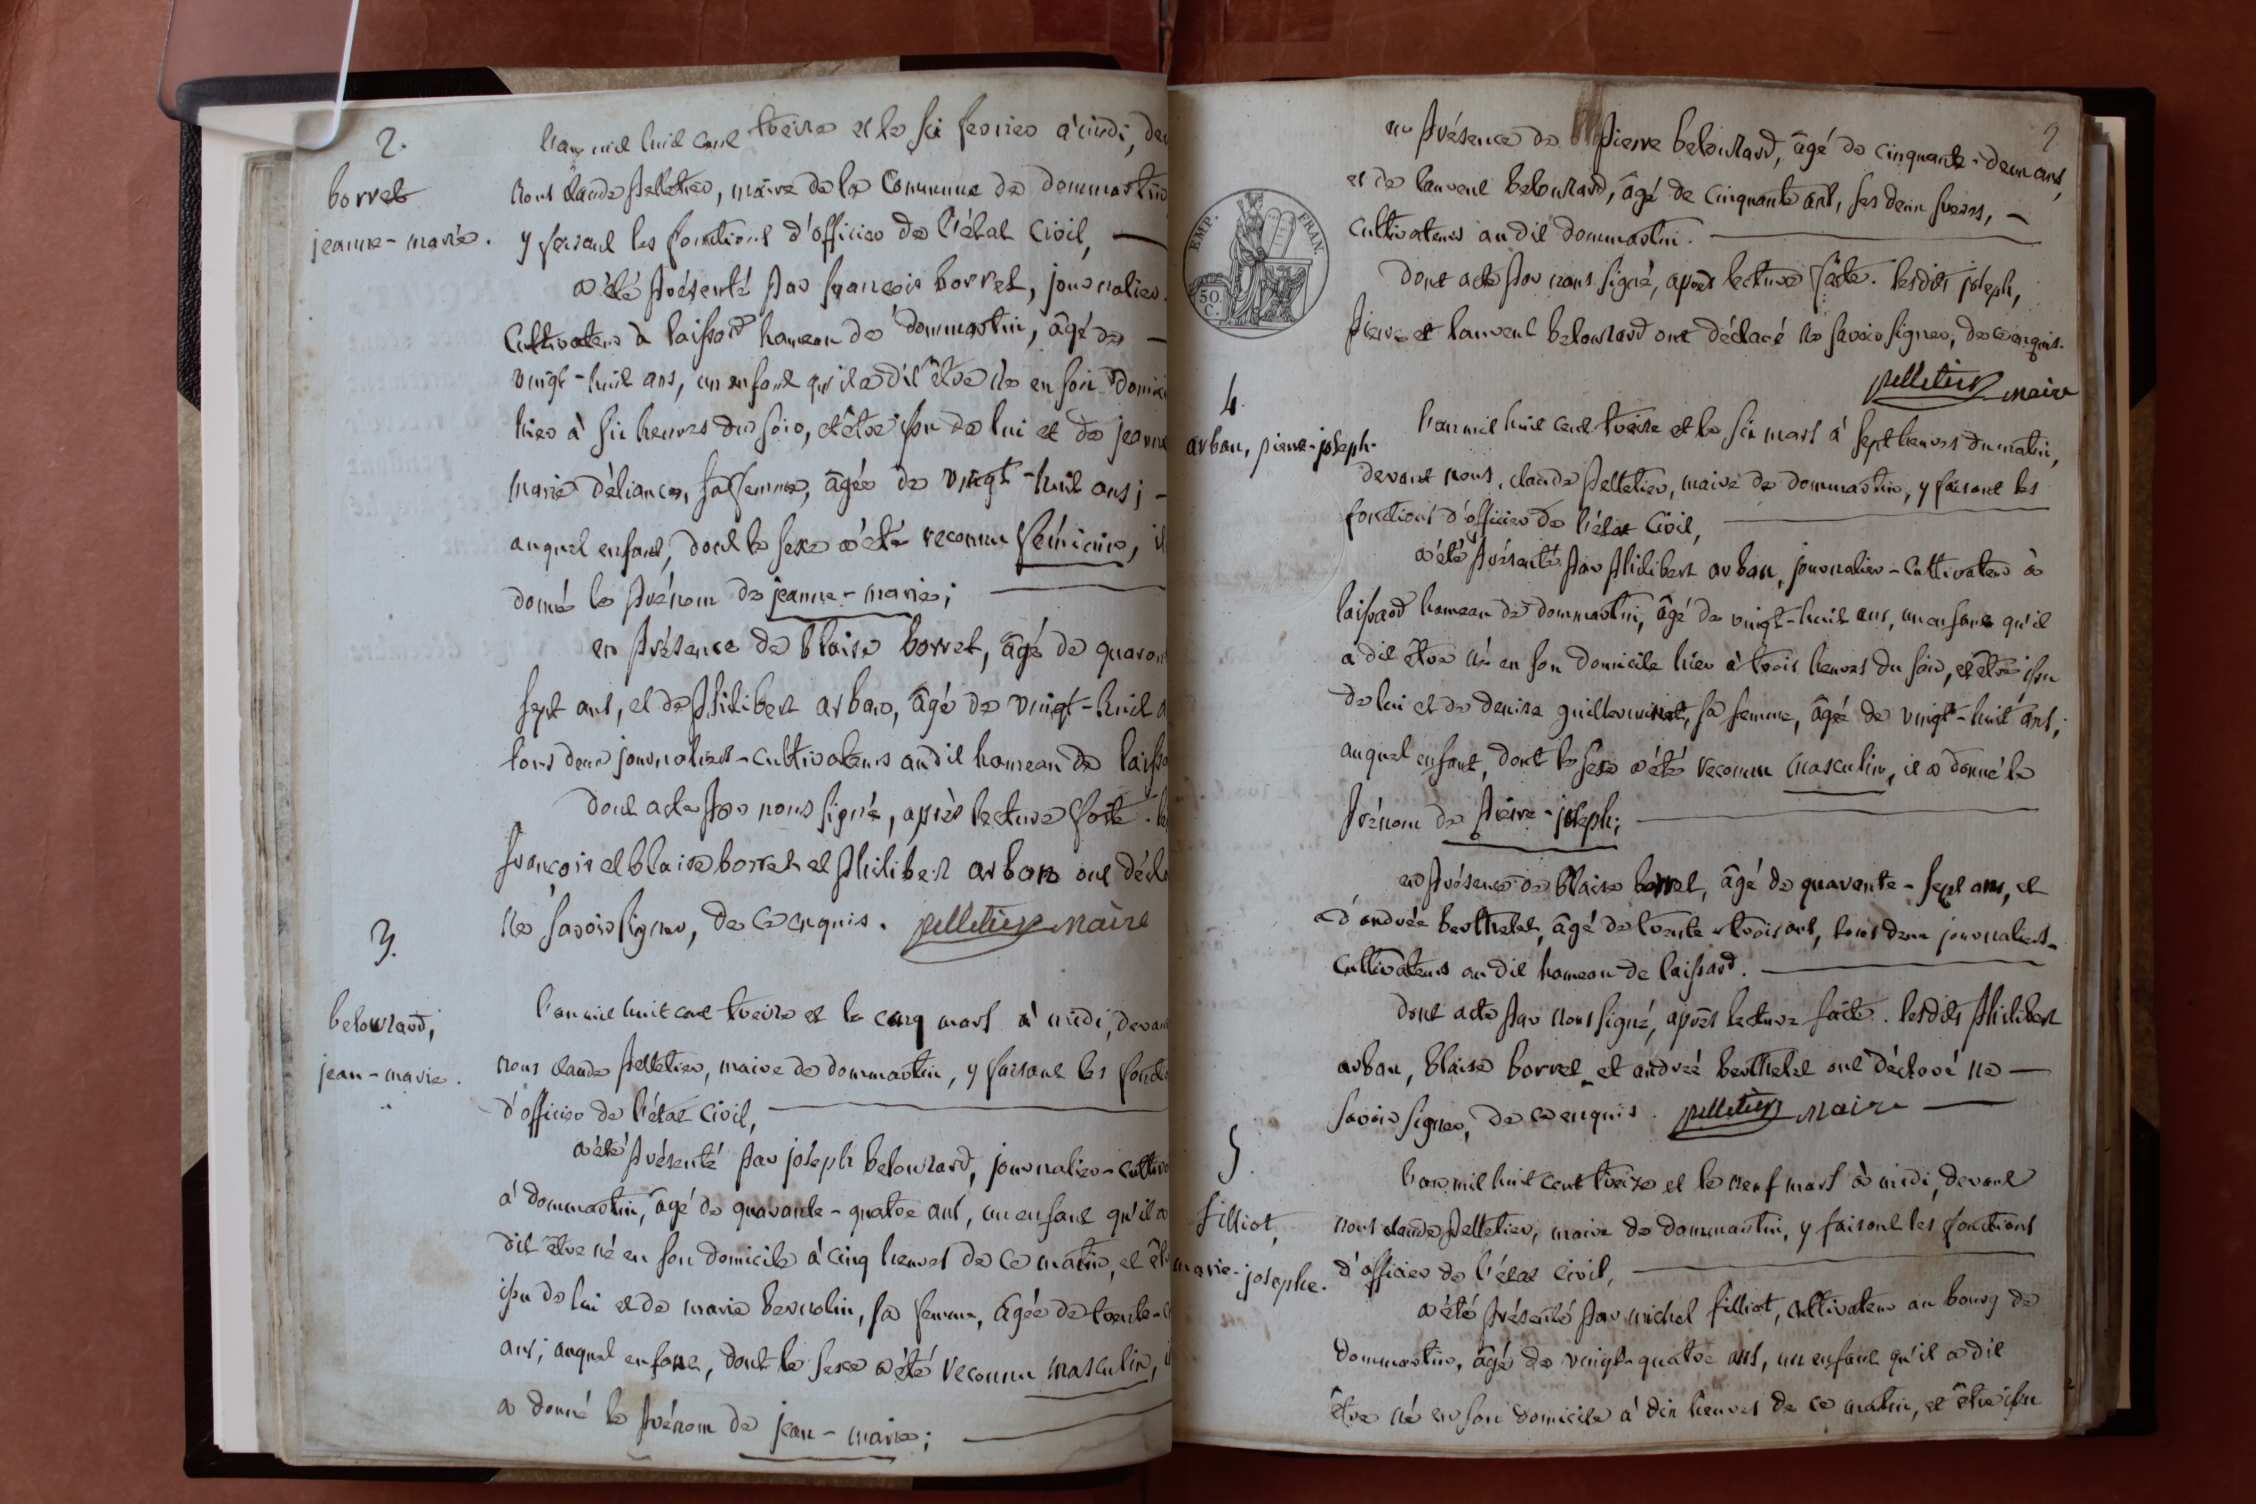 2.
borret
jeanne-marie.
l'an mil huit cent treize et le six fevrier à midi, de
nous claude pelletier, maire de la Commune de dommartin
y faisant les fonctions d'officier de l'état Civil,
a été présenté par françois borret, journalier
Cultivateur à laissard hameau de dommartin, âgé de
vingt-huit ans, un enfant qu'il a dit être né en son domici
hier à six heures du soir, et être issu de lui et de jeanne
marie déliance, sa femme, âgée de vingt-huit ans;
auquel enfant, dont le sexe a été reconnu féminin, il
donné le prénom de jeanne-marie;
en présence de blaise borret, âgé de quaran
sept ans, et de philibert arban, âgé de vingt-huit a
tous deux journaliers-cultivateurs audit hameau de laissa
dont acte par nous signé, après lecture faite.
françois et blaise borret et philibert arban ont décla
ne savoir signer, de ce enquis. pelletier maire
3.
belouzard,
jean-marie.
l'an mil huit cent treize et le cinq mars à midi, devant
nous claude pelletier, maire de dommartin, y faisant les foncti
d'officier de l'état Civil,
a été présenté par joseph belouzard, journalier-cultiva
à dommartin, âgé de quarante-quatre ans, un enfant qu'il a
dit être né en son domicile à cinq heures de ce matin, et êt
issu de lui et de marie, sa femme, âgée de trente-
ans; auquel enfant, dont le sexe a été reconnu masculin, i
a donné le prénom de jean-marie;
2
en présence de pierre belouzard, âgé de cinquante-deux ans,
et de laurent belouzard, âgé de cinquante ans, ses deux freres,
cultivateurs audit dommartin.
EMP. FRAN.
50 C.
dont acte par nous signé, après lecture faite. lesdits joseph,
pierre et laurent belouzard ont déclaré ne savoir signer, de ce enquis.
pelletier maire
4.
arban, pierre-joseph.
l'an mil huit cent treize et le six mars à sept heures du matin,
devant nous, claude pelletier, maire de dommartin, y faisant les
fonctions d'officier de l'état Civil,
a été présenté par philibert arban, journalier-cultivateur à
laissard hameau de dommartin, âgé de vingt-huit ans, un enfant qu'il
a dit être né en son domicile hier à trois heures du soir, et être issu
de lui et de denise, sa femme, âgée de vingt-huit ans;
auquel enfant, dont le sexe a été reconnu masculin, il a donné le
prénom de pierre-joseph;
en présence de blaise borret, âgé de quarante-sept ans, et
d'andrée berthelet, âgé de trente-trois ans, tous deux journaliers-
cultivateurs audit hameau de laissard.
dont acte par nous signé, après lecture faite. lesdits philibert
arban, blaise borret et andrée berthelet ont déclaré ne
savoir signer, de ce enquis. pelletier maire
5.
filliot,
marie-josephe.
l'an mil huit cent treize et le neuf mars à midi, devant
nous claude pelletier, maire de dommartin, y faisant les fonctions
d'officier de l'état Civil,
a été présenté par michel filliot, cultivateur au bourg de
dommartin, âgé de vingt-quatre ans, un enfant qu'il a dit
être né en son domicile à dix heures de ce matin, et être issu